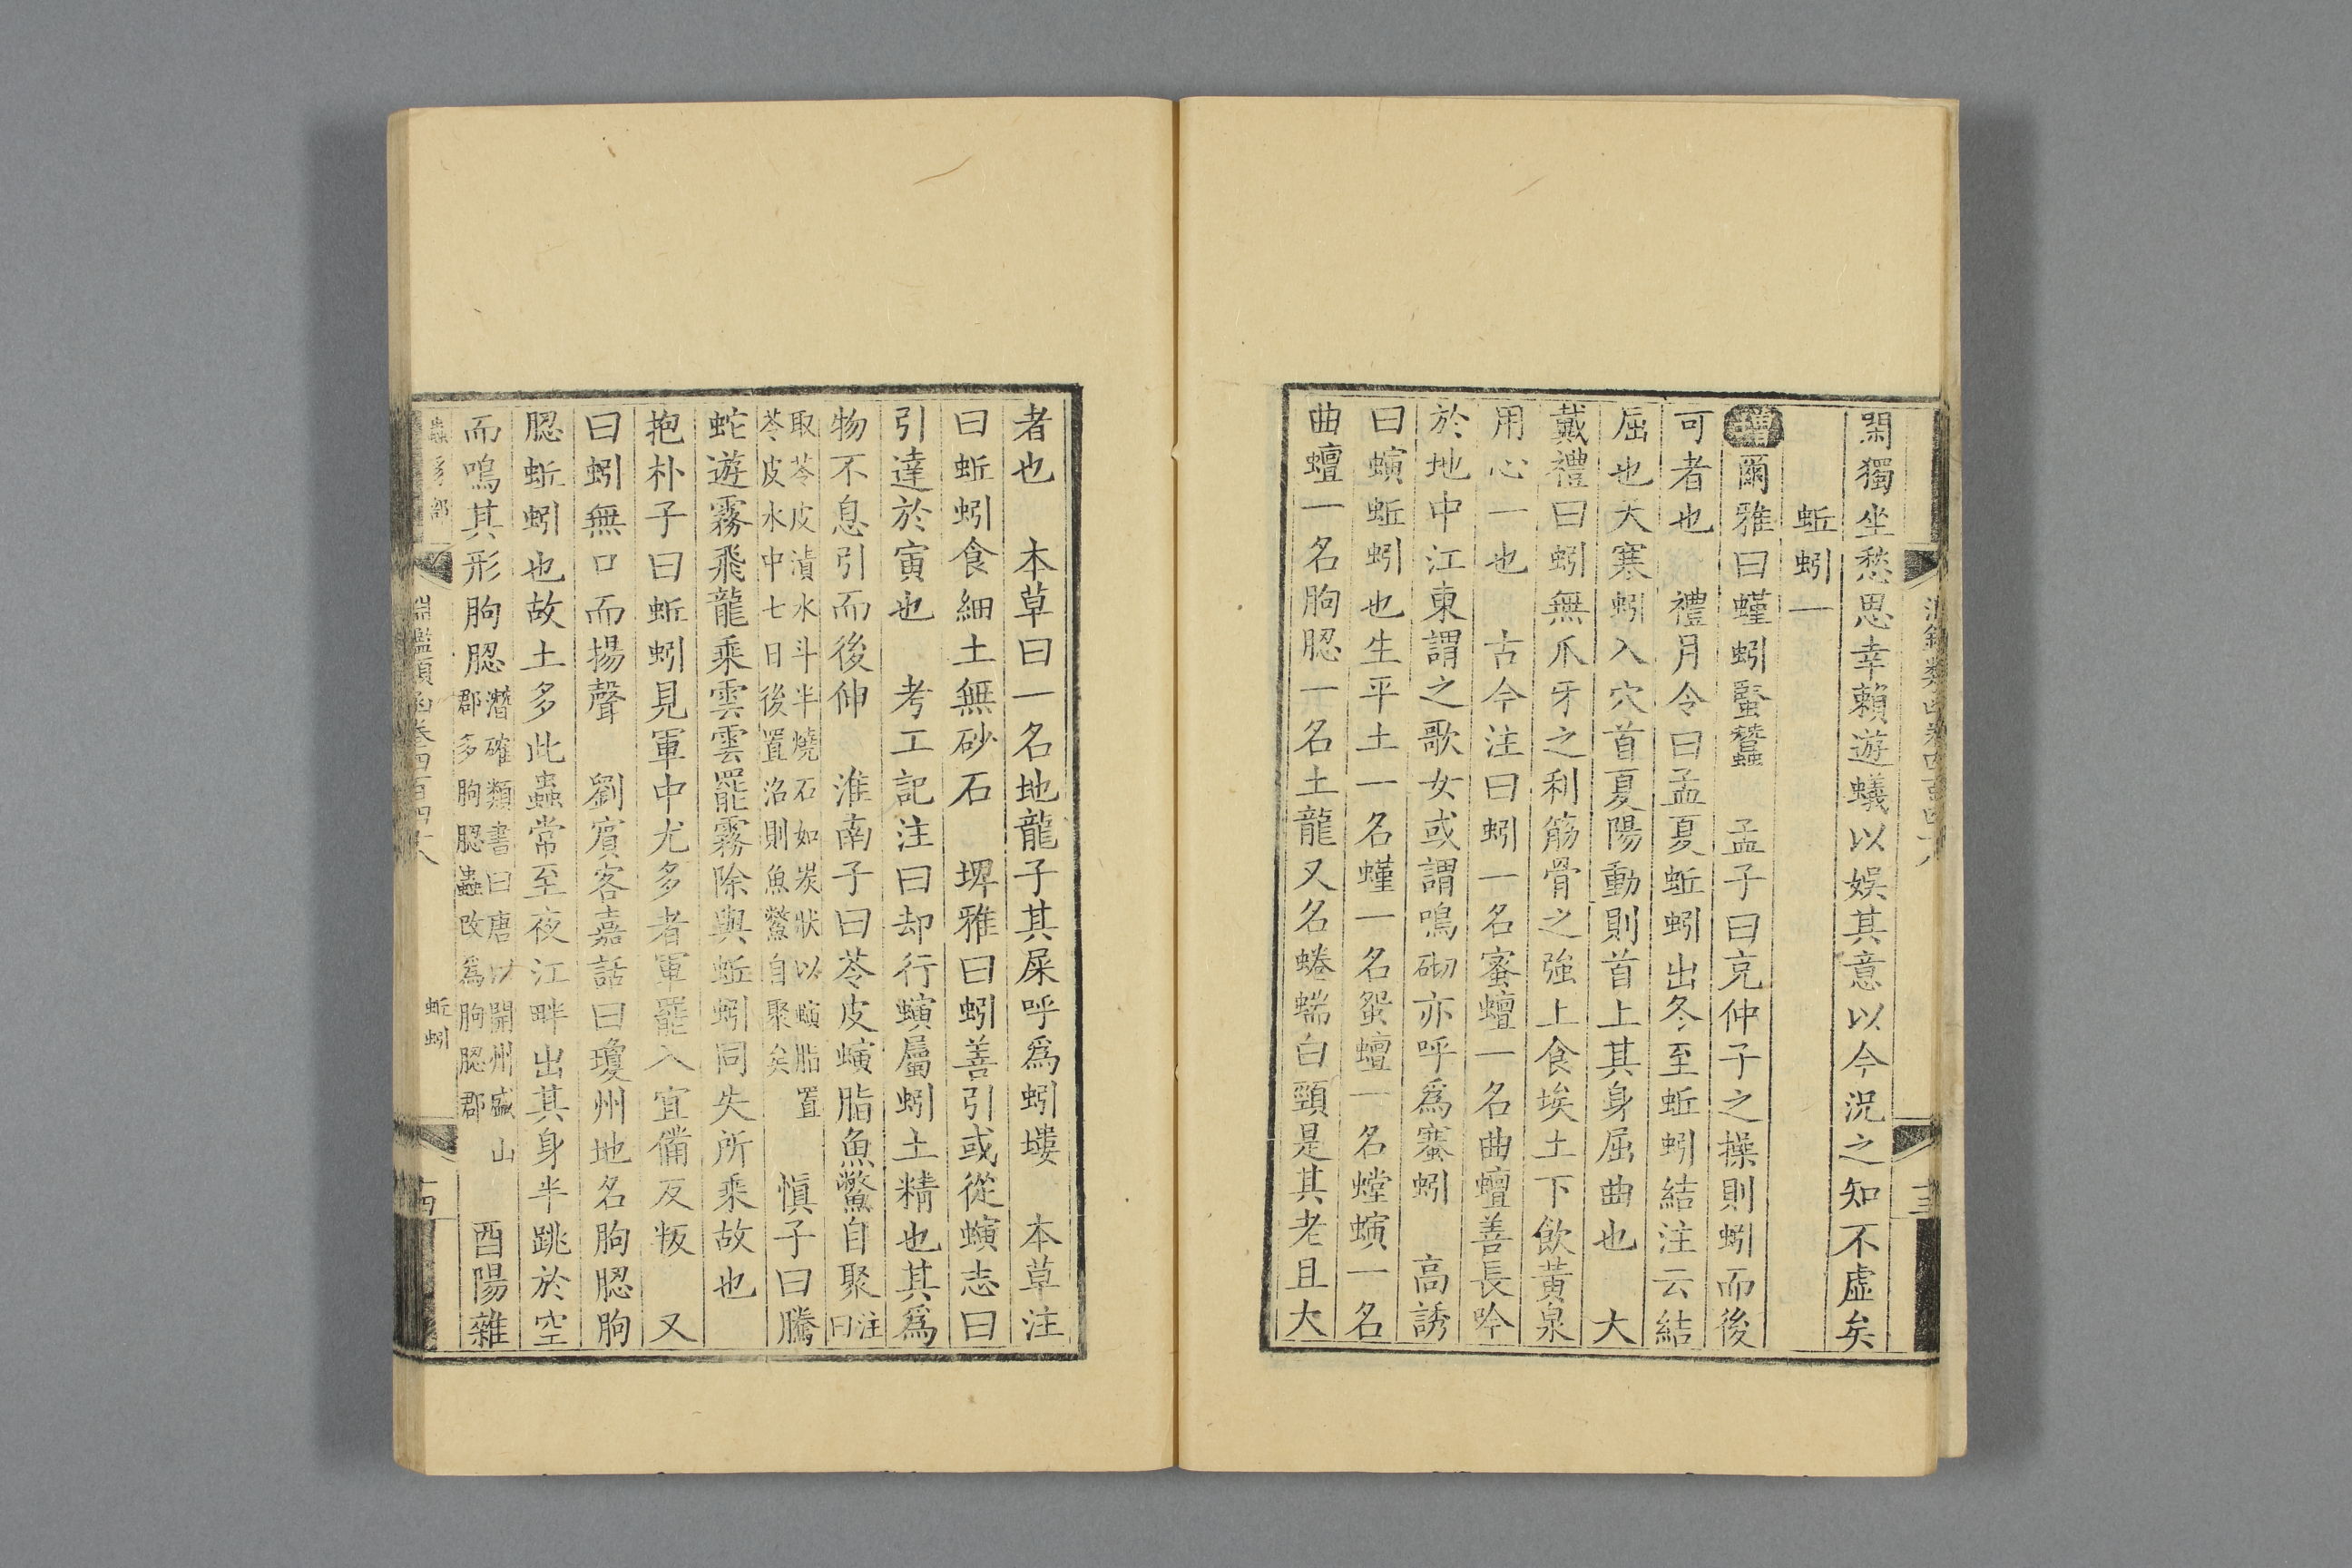 閑獨坐愁思幸賴遊蟻以娛其意以今況之知不虛矣
蚯蚓一
增爾雅曰螼蚓蜸蠶 孟子曰充仲子之操則蚓而後
可者也 禮月令曰孟夏蚯蚓出冬至蚯蚓結注云結
屈也大寒蚓入穴首夏陽動則首上其身屈曲也 大
戴禮曰蚓無爪牙之利筋骨之強上食埃土下飲黃泉
用心一也 古今注曰蚓一名蜜蟺一名曲蟺善長吟
於地中江東謂之歌女或謂鳴砌亦呼為寒蚓 高誘
曰螾蚯蚓也生平土一名螼一名蜸蟺一名螳螾一名
曲蟺一名朐䏰一名土龍又名蜷蠕白頸是其老且大
者也 本草曰一名地龍子其屎呼為蚓塿 本草注
曰蚯蚓食細土無砂石 埤雅曰蚓善引或從螾志曰
引達於寅也 考工記注曰却行螾屬蚓土精也其為
物不息引而後伸 淮南子曰苓皮螾脂魚鱉自聚注曰
取苓皮漬水斗半燒石如炭狀以螾脂置
苓皮水中七日後置沼則魚鱉自聚矣 慎子曰騰
蛇遊霧飛龍乘雲雲罷霧除與蚯蚓同失所乘故也
抱朴子曰蚯蚓見軍中尤多者軍罷入宜備反叛 又
曰蚓無口而揚聲 劉賓客嘉話曰瓊州地名朐䏰朐
䏰蚯蚓也故土多此蟲常至夜江畔出其身半跳於空
而鳴其形朐䏰潛確類書曰唐以開州盛山
郡多朐䏰蟲改為朐䏰郡 酉陽雜
淵鑑類函卷四百四十八
蚯蚓
十四
十三